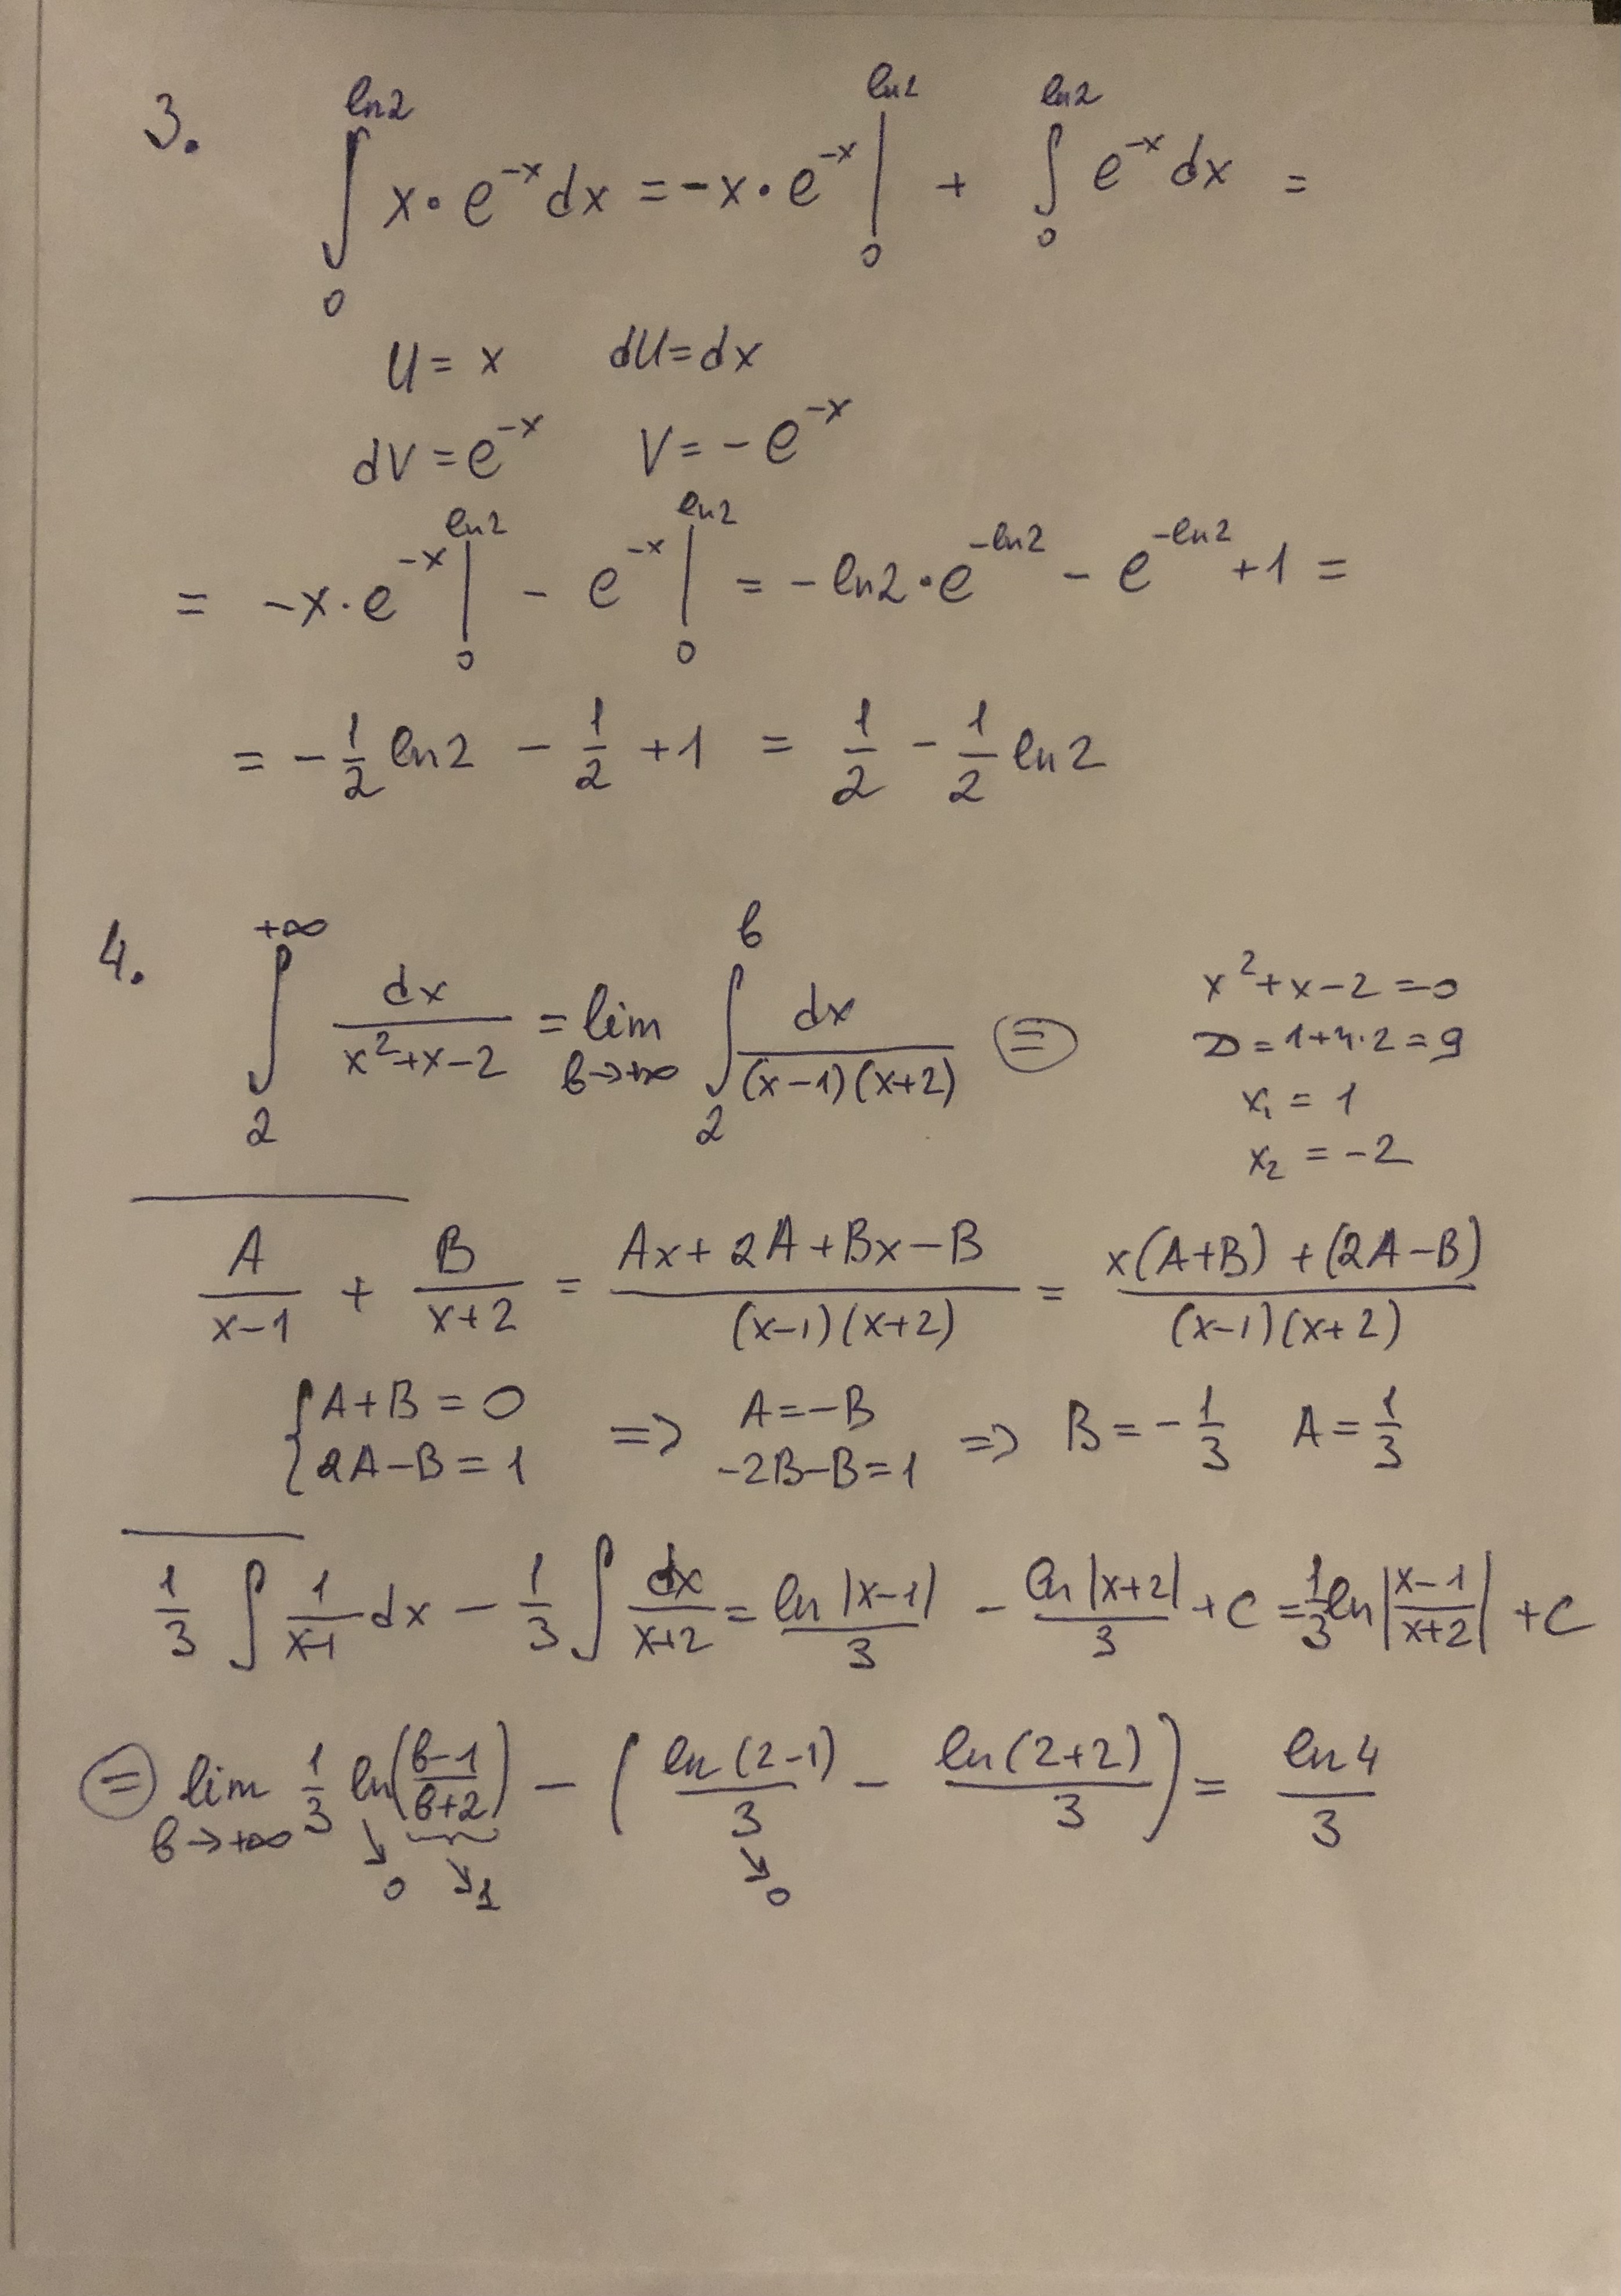 3. ∫₀^{ln2} x·e^{-x}dx = -x·e^{-x}|₀^{ln2} + ∫₀^{ln2} e^{-x}dx =
U = x dU = dx
dV = e^{-x} V = -e^{-x}
= -x·e^{-x}|₀^{ln2} - e^{-x}|₀^{ln2} = -ln2·e^{-ln2} - e^{-ln2} + 1 =
= -1/2 ln2 - 1/2 + 1 = 1/2 - 1/2 ln2
4. ∫₂^{+∞} dx/(x²+x-2) = lim_{b→+∞} ∫₂^b dx/((x-1)(x+2)) ⊜
x²+x-2=0
D=1+4·2=9
x₁ = 1
x₂ = -2
A/(x-1) + B/(x+2) = (Ax+2A+Bx-B)/((x-1)(x+2)) = (x(A+B)+(2A-B))/((x-1)(x+2))
{A+B=0 => A=-B => B=-1/3 A=1/3
{2A-B=1 -2B-B=1
1/3 ∫ 1/(x-1) dx - 1/3 ∫ dx/(x+2) = ln|x-1|/3 - ln|x+2|/3 + C = 1/3 ln|(x-1)/(x+2)| + C
⊜ lim_{b→+∞} 1/3 ln((b-1)/(b+2)) - (ln(2-1)/3 - ln(2+2)/3) = ln4/3
↘0 ↘1 ↘0